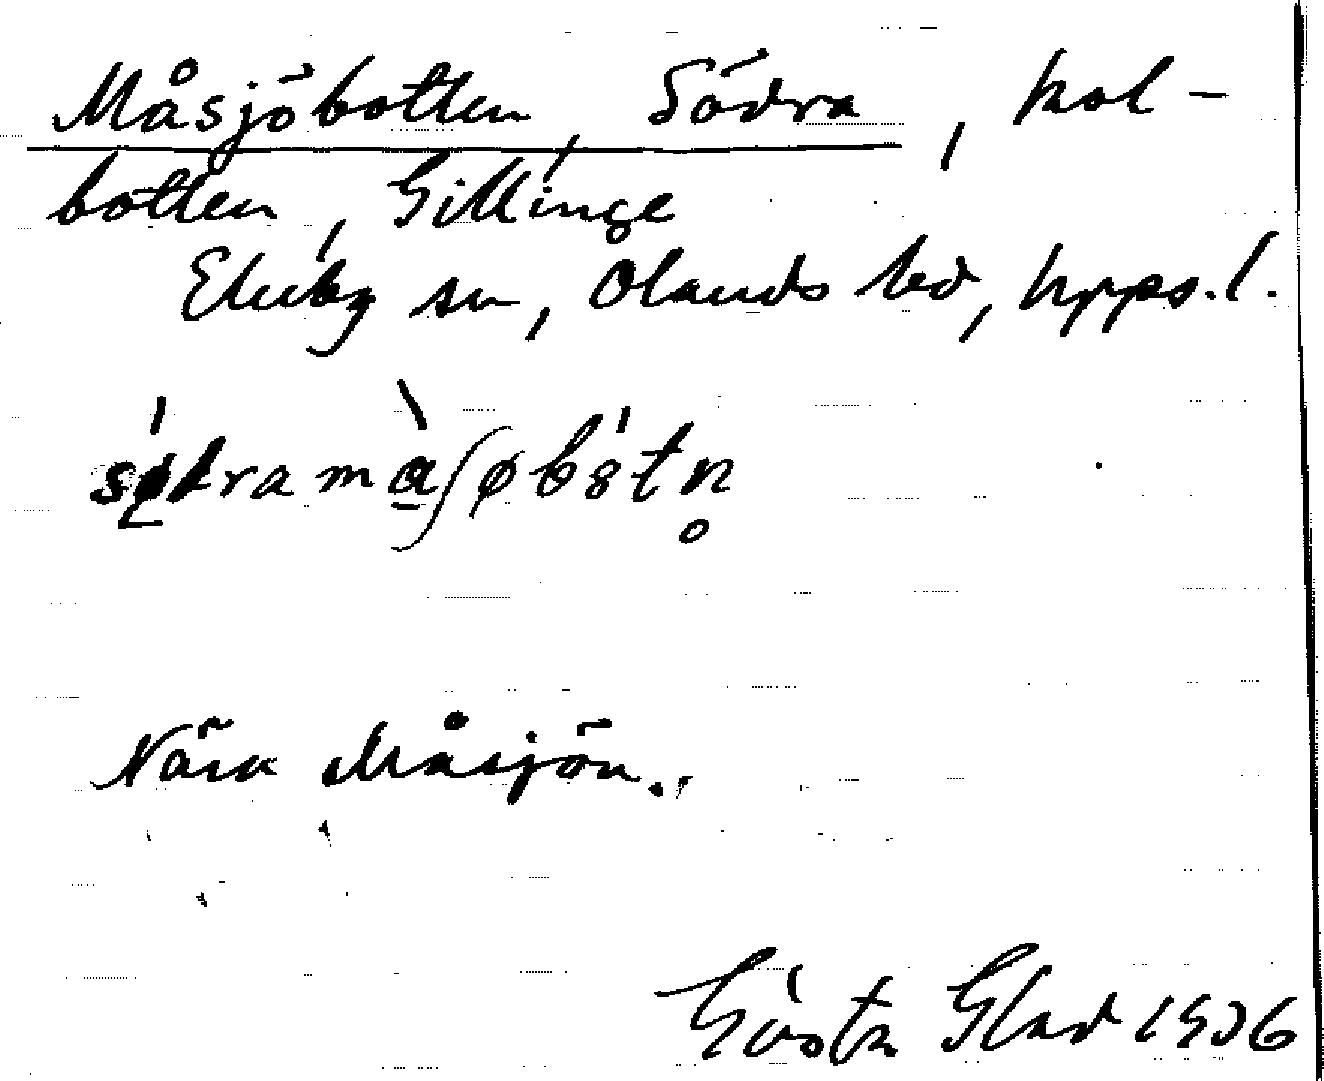 Måsjöbotten, Södra, kol-
botten, Gillinge
Ekeby sn, Olands hd, Upps. l.
Nära Måsjön.
Gösta Glad 1936